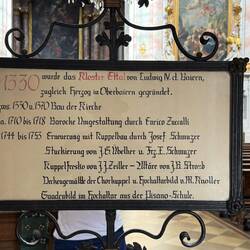 1330 wurde das Kloster Ettal von Ludwig d. Baiern,
zugleich Herzog in Oberbaiern gegründet.
zws. 1330 u. 1370 Bau der Kirche
ca. 1710 bis 1718 Barocke Umgestaltung durch Enrico Zuccalli
1744 bis 1753 Erneuerung mit Kuppelbau durch Josef Schmuzer
Stuckierung von J.G. Übelher u. Frz. X. Schmuzer
Kuppelfresko von J.J. Zeiller - Altäre von J.B. Straub
Deckengemälde der Chorkuppel u. Hochaltarbild M. Knoller
Gnadenbild im Hochaltar aus der Pisano-Schule.